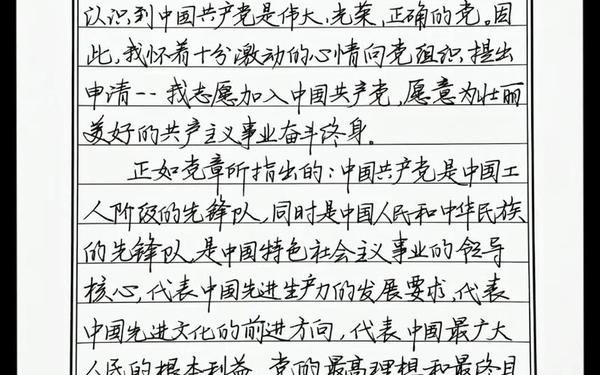 认识到中国共产党是伟大、光荣、正确的党。因
此,我怀着十分激动的心情向党组织提出
申请--我志愿加入中国共产党,愿意为壮丽
美好的共产主义事业奋斗终身。
正如党章所指出的:中国共产党是中国工
人阶级的先锋队,同时是中国人民和中华民族
的先锋队,是中国特色社会主义事业的领导
核心,代表中国先进生产力的发展要求,代表
中国先进文化的前进方向,代表中国最广大
人民的根本利益。党的最高理想和最终目